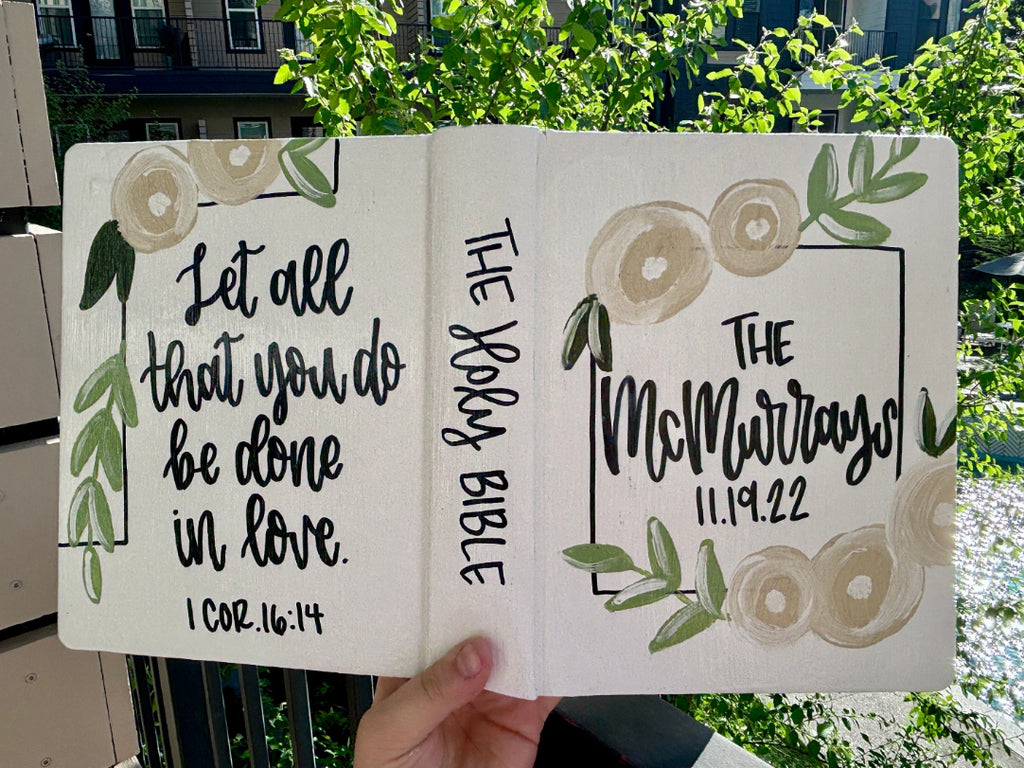 Let all
that you do
be done
in love.
1 COR.16:14
THE Holy BIBLE
THE
McMurrays
11.19.22